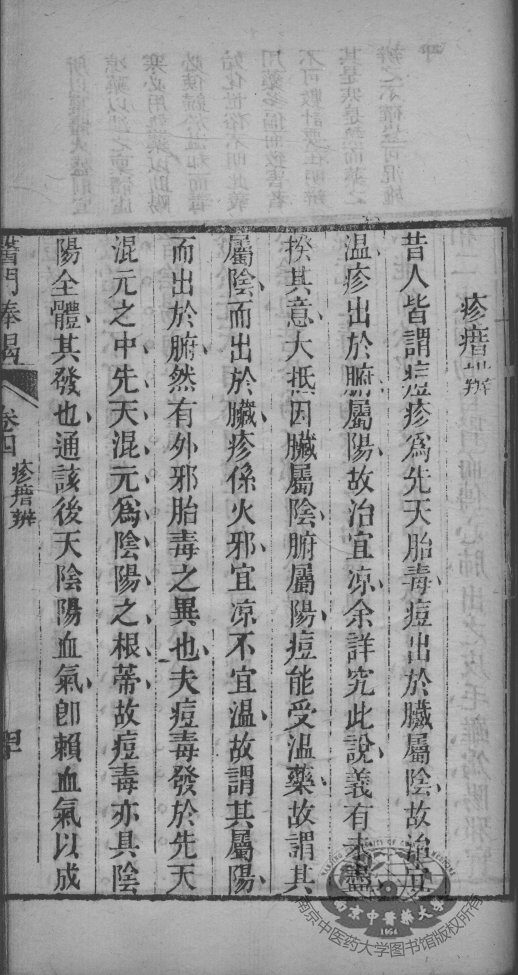 疹瘄辨
昔人皆謂痘疹爲先天胎毒痘出於臟屬陰故治宜
温疹出於腑屬陽故治宜凉余詳究此說義有未盡
揆其意大抵因臟屬陰腑屬陽痘能受温藥故謂其
屬陰而出於臟疹係火邪宜凉不宜温故謂其屬陽
而出於腑然有外邪胎毒之異也夫痘毒發於先天
混元之中先天混元爲陰陽之根蒂故痘毒亦具陰
陽全體其發也通該後天陰陽血氣卽賴血氣以成
醫門奉曷 卷四 疹瘄辨
南京中医药大学图书馆版权所有
南京中醫藥大學
1954